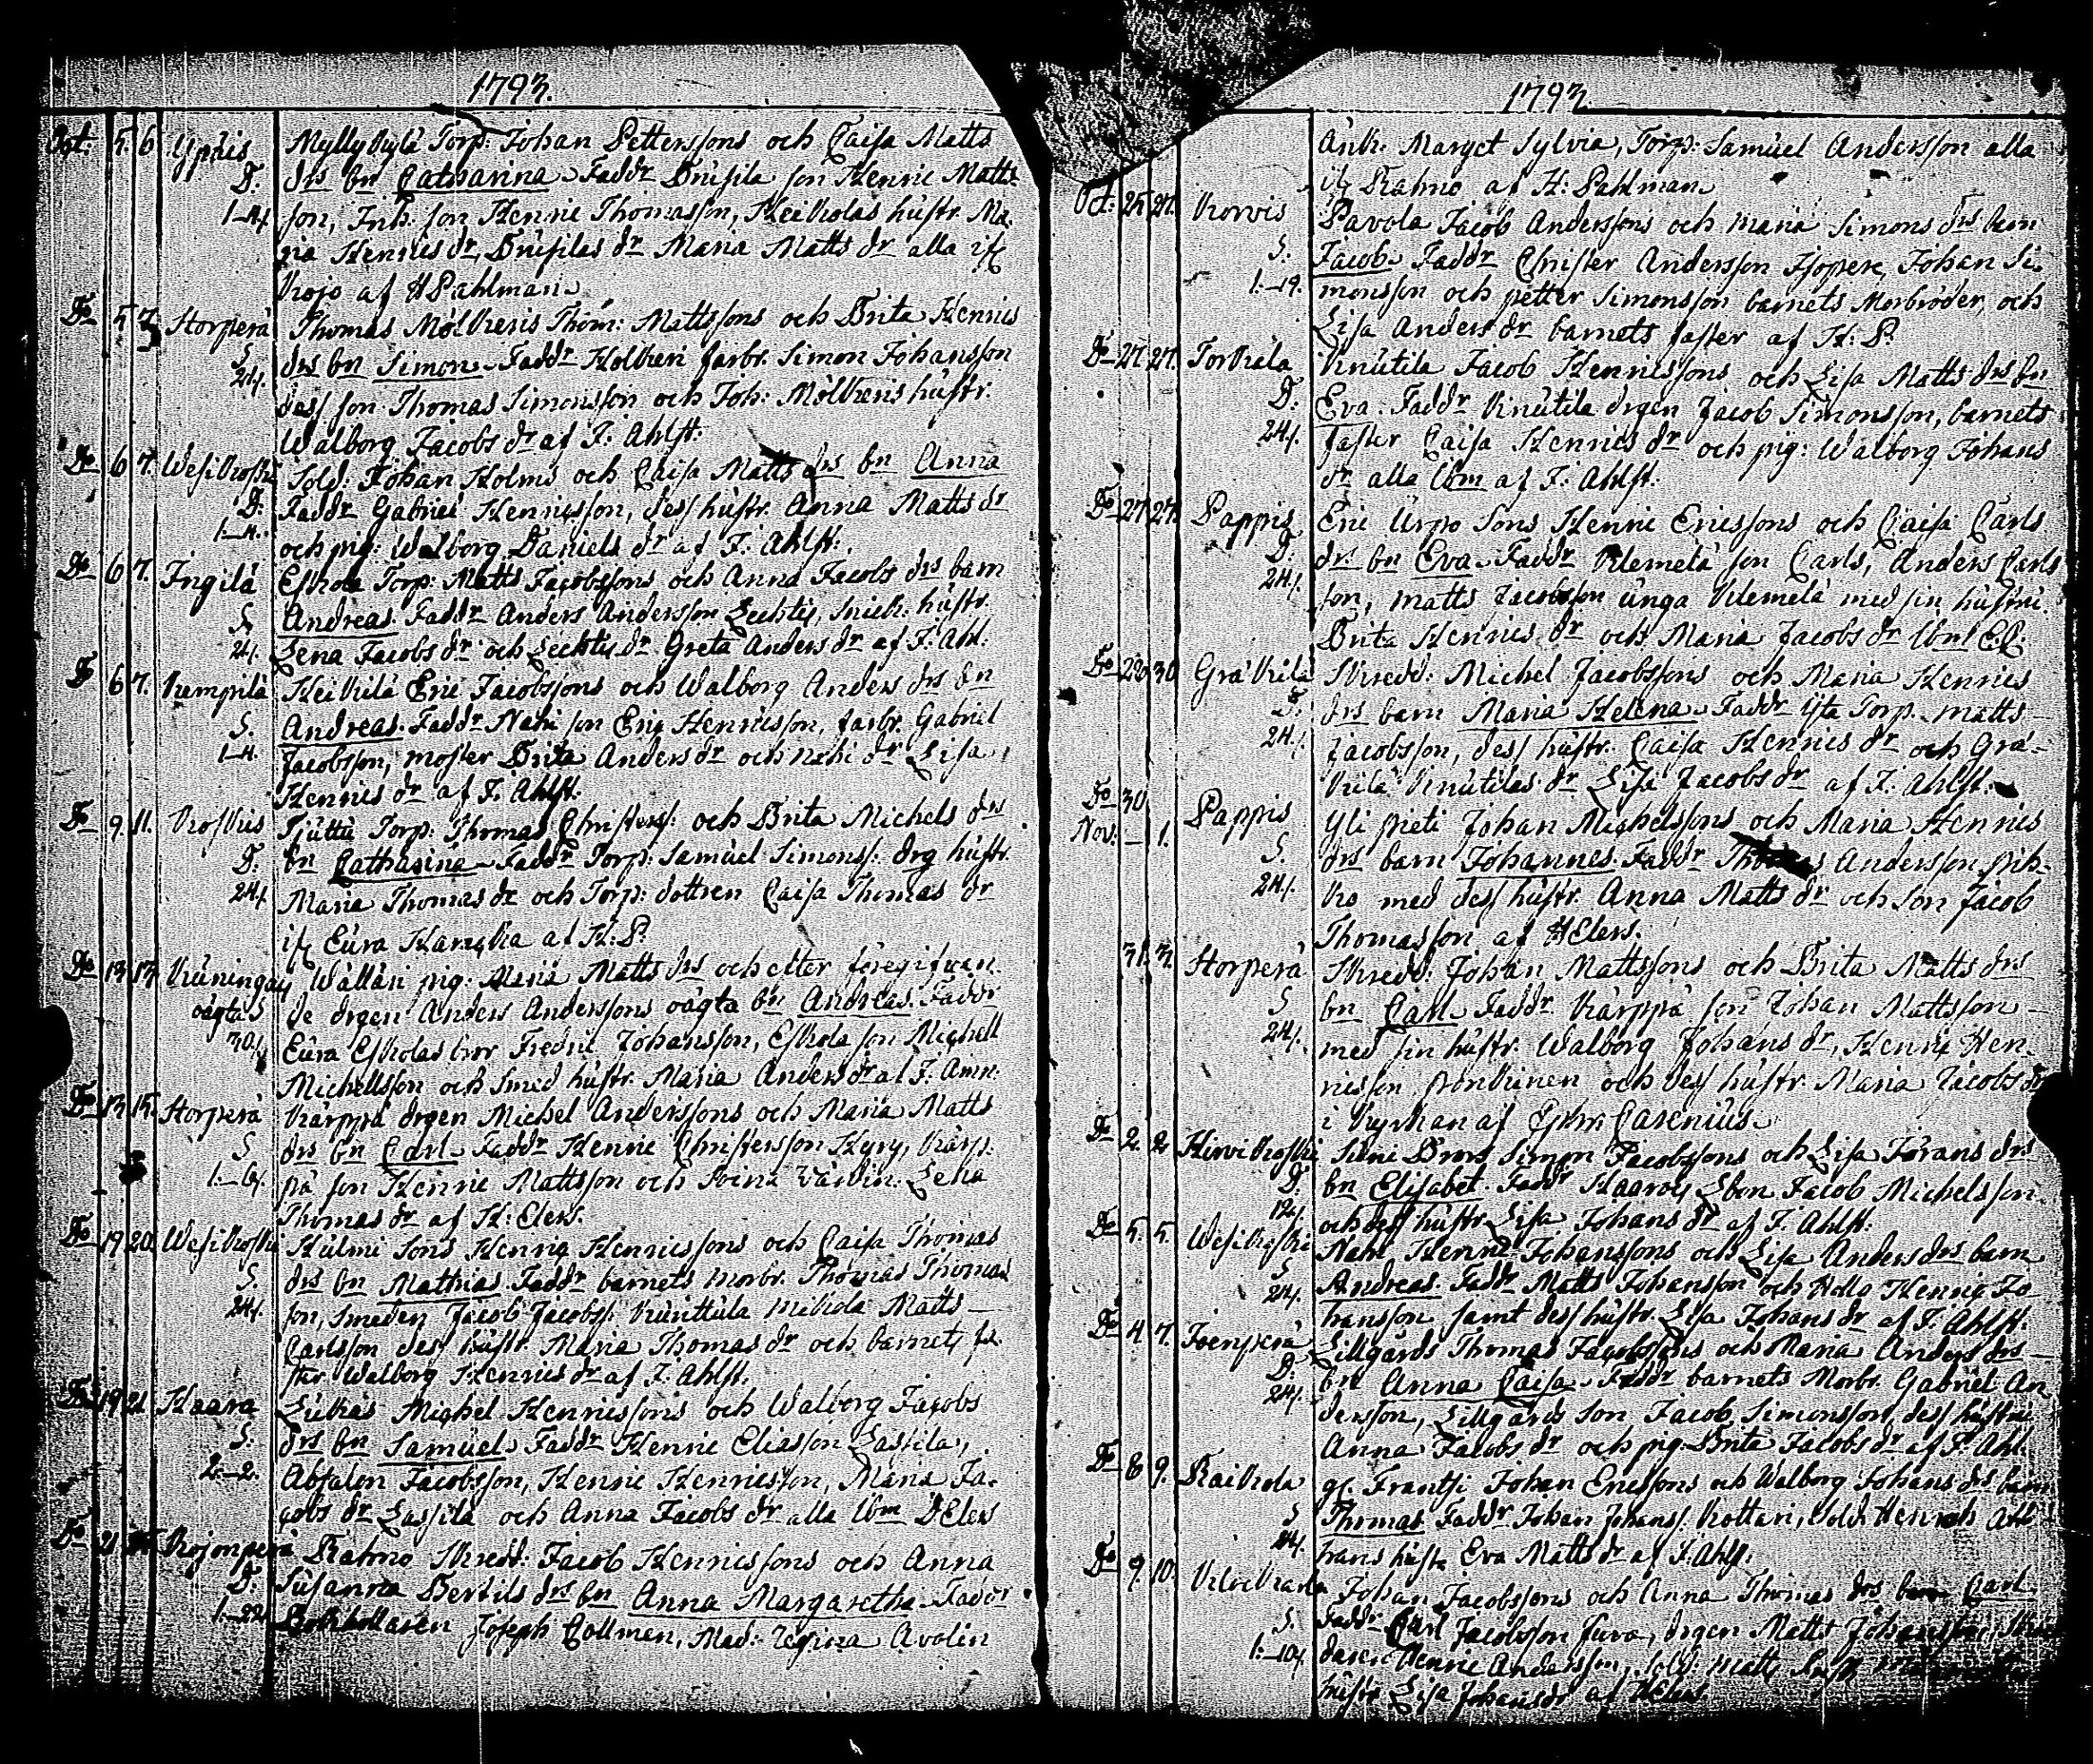 1793.
Oct. 5. 6 Ypäis Myllykylä Torp: Johan Petterssons och Caisa Matts
D. drs bn Catharina. Faddr Brusila son Henric Matts-
1-4/. son, Inh. son Henric Thomasson, Heikolas hustr. Ma-
ria Henrics dr, Brusilas dr Maria Matts dr alla if
Kojo af H Pahlman.
Do 5 7 Storperä Thomas Mölkeris Thom: Mattssons och Brita Henrics
S drs bn Simon. Faddr Holkeri farbr. Simon Johansson
24/. dess son Thomas Simonsson och Joh: Mölkeris hustr.
Walborg Jacobs dr af J. Ahlst:
Do 6 7. Wesikoski Sold: Johan Holms och Caisa Matts drs bn Anna
D. Faddr Gabriel Henricsson, dess hustr. Anna Matts dr
1-4. och pig: Walborg Daniels dr af J. Ahlst:
Do 6 7. Ingilä Eskola Torp: Matts Jacobssons och Anna Jacobs drs barn
S. Andreas. Faddr Anders Andersson Lechtis, Snick: hustr.
24. Lena Jacobs dr och Lechtis dr Greta Anders dr af J. Ahl.
Do 6 7. Kempilä Heikilä Eric Jacobssons och Walborg Anders drs bn
S. Andreas. Faddr Nahi son Eric Henricsson, farbr. Gabriel
1-4. Jacobsson, moster Brita Anders dr och Nahi dr Lisa
Henrics dr af J. Ahlst.
Do 9. 11. Koskis Tjuttu Torp: Thomas Christerss: och Brita Michels drs
D. bn Catharina. Faddr Torp: Samuel Simonss: drg hustr.
24/. Maria Thomas dr och Torp: dottren Caisa Thomas dr
if Eura af H: P.
Do 13 13 Wälläri pig: Maria Matts drs och efter föregifwan-
oägta S de drgen Anders Anderssons oägta bn Andreas. Faddr
30/. Eura Eskolas bror Fredric Johansson, Eskola son Michell
Michellsson och Smed hustr. Maria Anders dr af J. Amn.
Do 13 15. Storperä Kärppä drgen Michel Anderssons och Maria Matts
S drs bn Carl. Faddr Henric Christersson Hyry, Kärp-
pä son Henric Mattsson och Lena
Thomas dr af H: Elers.
Do 19 20 Wesikoski Hulmi Sons Henric Henricssons och Caisa Thomas
S. drs bn Mathias. Faddr barnets morbr. Thomas Thomas
24/. son, Smeden Jacob Jacobss: Kunttula Mikola Matts
Carlsson dess hustr. Maria Thomas dr och barnets fa-
ster Walborg Henrics dr af J. Ahlst.
Do 19 21 Haara Lukas Michel Henricssons och Walborg Jacobs
S. drs bn Samuel. Faddr Henric Eliasson Lassila,
2.-2. Absalon Jacobsson, Henric Henricsson, Maria Ja-
cobs dr Lassila och Anna Jacobs dr alla ibm D Elers
Do 21 Kojonperä Rahmo Skredd: Jacob Henricssons och Anna
D. Susanna Bertils drs bn Anna Margaretha. Faddr
1.-22/. Joseph Collmen, Mad: Regina Avolin
1793
Ank: Margret Sylvia, Torp: Samuel Andersson alla
if Rahmo af H: Pahlman
Oct. 25 27. Korvis Pavola Jacob Anderssons och Maria Simons drs barn
S. Jacob. Faddr Christer Andersson Isopere, Johan Si-
1.-19. monsson och petter Simonsson barnets Morbröder, och
Lisa Anders dr barnets faster af H: P.
Do 27. 27. Torkila Knutila Jacob Henricssons och Lisa Matts drs bn
D. Eva. Faddr Knutila drgen Jacob Simonsson, barnets
24/. faster Caisa Henrics dr och pig: Walborg Johans
dr alla ibm af J. Ahlst.
Do 27. 27. Pappis Eric Urpo Sons Henric Ericssons och Caisa Carls
D. drs bn Eva. Faddr Klemelä son Carls, Anders Carls
24/. son, Matts Jacobsson unga Klemelä med sin hustru
Brita Henrics dr och Maria Jacobs dr ibm E.P.
Do 28 30 Gräkilä Skredd: Michel Jacobssons och Maria Henrics
D. drs barn Maria Helena. Faddr Torp. Matts
24/. Jacobsson, dess hustr. Caisa Henrics dr och Grä-
kilä Knutilas dr Lisa Jacobs dr af J. Ahlst.
Do 30 Pappis Yli prieti Johan Michelssons och Maria Henrics
Nov. – 1. S. drs barn Johannes. Faddr Thomas Andersson pih-
24/. ko med dess hustr. Anna Matts dr och Son Jacob
Thomasson af H Elers.
31. 3. Storperä Skredd: Johan Mattssons och Brita Matts drs
S bn Carl. Faddr Kärppä son Johan Mattsson
24/. med sin hustr. Walborg Johans dr, Henric Hen-
ricsson och dess hustr. Maria Jacobs dr
i Kyrkan af Carenius
Do 2. 2 Hirvikoski Simon Jacobssons och Lisa Jörans drs
D. bn Elisabet. Faddr Jacob Michelsson
12/. och dess hustr Lisa Johans dr af J. Ahlst:
Do 5. 5. Wesikoski Nahi Henric Johanssons och Lisa Anders drs barn
S Andreas. Faddr Matts Johansson och Henric Jo-
24/. hansson samt dess hustr. Lisa Johans dr af J. Ahlst.
Do 4. 7. Joenperä Lillgårds Thomas Jacobssons och Maria Anders drs
D. bn Anna Caisa. Faddr barnets Morbr. Gabriel An
24/. dersson, Lillgårds Son Jacob Simonsson, dess hustru
Anna Jacobs dr och pig Brita Jacobs dr af J. Ahl.
Do 8 9. Raikola gl. Frantsi Johan Ericssons och Walborg Johans drs barn
S Thomas. Faddr Johan Johanss. Kottari, Sold. Henrich
24/. hans hustr Eva Matts dr af J. Ahls.
Do 9. 10. Johan Jacobssons och Anna Thomas drs barn Carl
S. Faddr Carl Jacobsson Juva, drgen Matts
1.-10/. Henric Andersson, Sold: Matts
hustr Lisa Johans dr af H Elers.